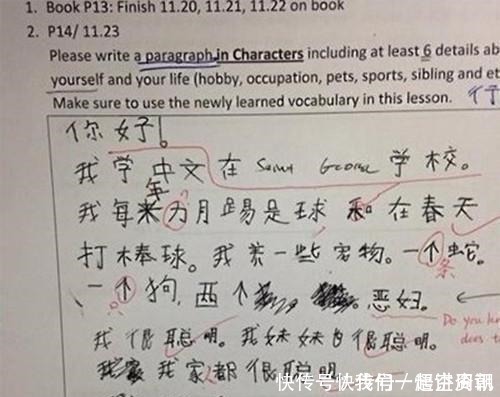 1. Book P13: Finish 11.20, 11.21, 11.22 on book
2. P14/ 11.23
Please write a paragraph in Characters including at least 6 details ab
yourself and your life (hobby, occupation, pets, sports, sibling and et
Make sure to use the newly learned vocabulary in this lesson.
你好!
我学中文在 Saint George 学校。
年
我每米力月踢是球和在春天
打棒球。我养一些宠物。一个蛇。
条
一个狗,两个 恶妇。
Do you kn
does t
我很聪明。我妹妹也很聪明。
我家都很聪明
快传号